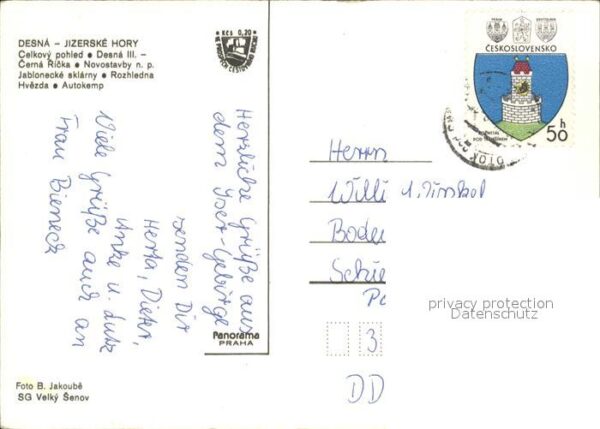 DESNÁ – JIZERSKÉ HORY
Celkový pohled • Desná III. –
Černá Říčka • Novostavby n. p.
Jablonecké sklárny • Rozhledna
Hvězda • Autokemp
Kčs 0,20
Herzliche Grüße aus
dem Iser-Gebirge
senden Dir
Herta, Dieter,
Anke u. Lutz
Viele Grüße auch an
Frau Bieneck
Panorama
PRAHA
Foto B. Jakoubě
SG Velký Šenov
ČESKOSLOVENSKO
50 h
Herrn
Willi
Bode
Schie
3
DD
privacy protection
Datenschutz